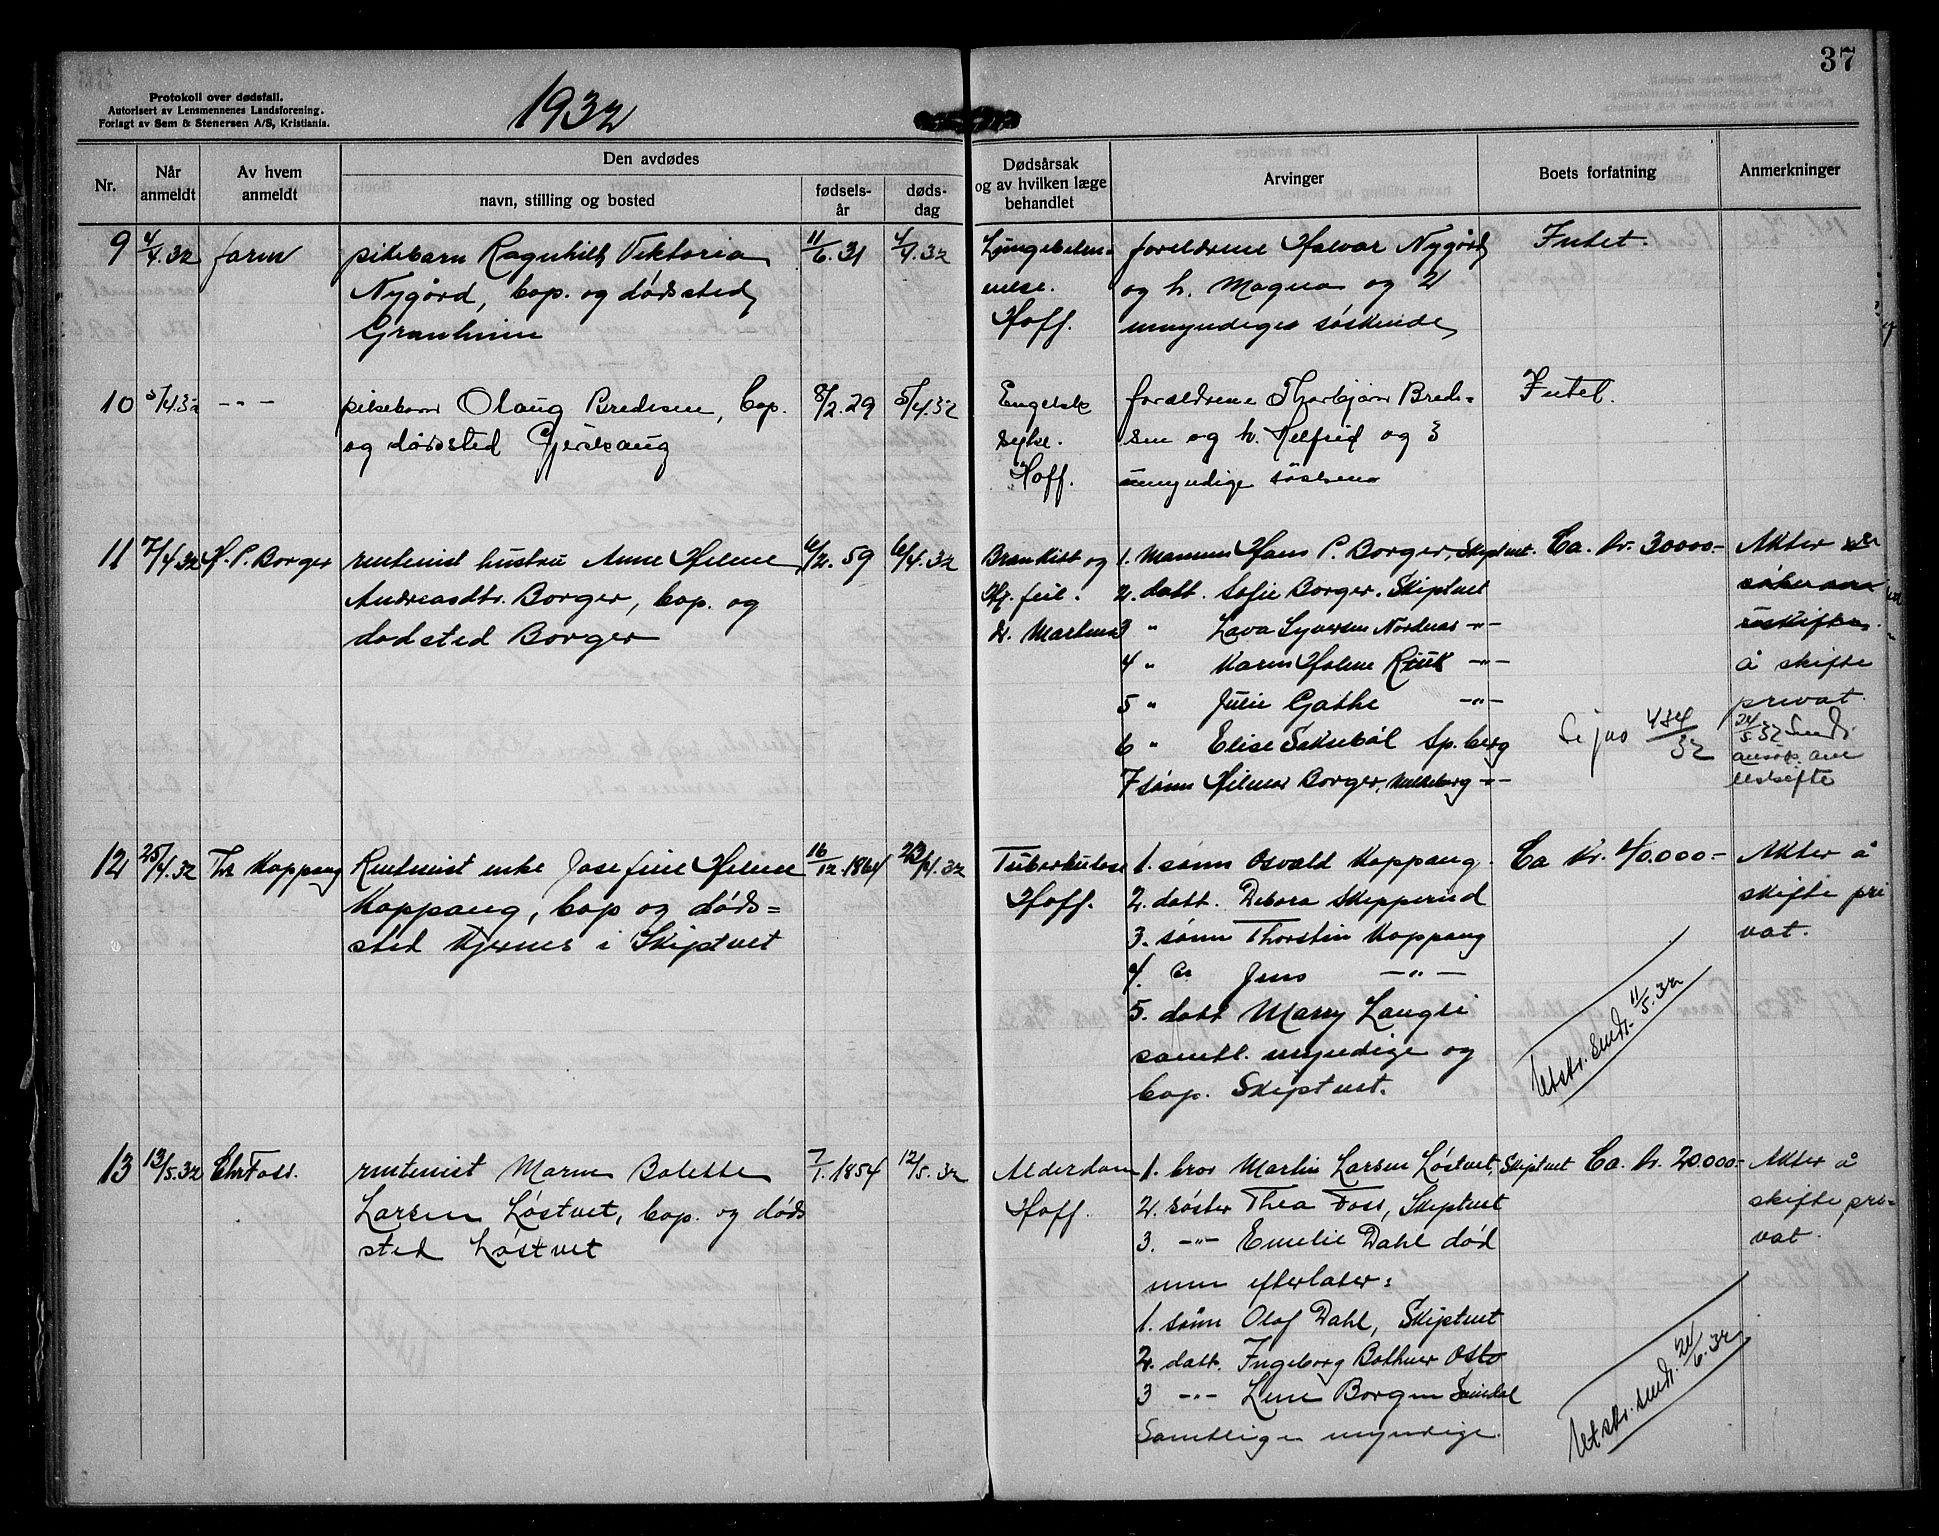 37
Protokoll over dødsfall.
Autorisert av Lensmennenes Landsforening.
Forlagt av Sem & Stenersen A/S, Kristiania.
1932
Nr.
Når anmeldt
Av hvem anmeldt
Den avdødes
navn, stilling og bosted
fødsels-år
døds-dag
Dødsårsak og av hvilken læge behandlet
Arvinger
Boets forfatning
Anmerkninger
9 4/4.32 faren
pikebarn Ragnhild Viktoria
Nygård, bop. og dødssted
Granheim
11/6.31 4/4.32
Lungebeten-
nelse.
Hoff.
foreldrene Halvar Nygård
og h. Magna og 2
umyndiges søskende
Intet.
10 5/4.32 -"-
pikebarn Olaug Bredesen, bop.
og dødssted Gjerskaug
8/2.29 5/4.32
Engelsk
syke.
Hoff.
foreldrene Thorbjørn Brede-
sen og h. Helfrid og 3
umyndige søsken
Intet.
11 7/4.32 H. P. Borger
rentenist hustru Anne Helene
Andreasdtr. Borger, bop. og
dødsted Borger
6/2.59 6/4.32
Bronkitt og
Hj. feil.
d. Martens
1. Mannen Hans P. Borger, Skiptvet.
2. datt. Sofie Borger. Skiptvet
3 " Lava Syversen Nordnes -"-
4 " Karen Holene -"-
5 " Julie Gathe -"-
6 " Elise Sp. berg
7 sønn Hilmar Borger, -"-
Ca. kr. 30000.-
484/32
Akter
å skifte
privat.
24/5.32 Sendt
ansøk. om
utskifte
12 25/4.32 Th. Koppang
Rentenist enke Josefine Helene
Koppang, bop og døds=
sted Kjernes i Skiptvet
16/12.1864 23/4.32
Tuberkulose
Hoff.
1. sønn Osvald Koppang.
2. datt. Debora Skipperud
3. sønn Thorstein Koppang
4. " Jens -"-
5. datt Marry Langli
samtl. myndige og
bop. Skiptvet.
Ca kr. 40.000.-
Utskr. sendt. 11/5.32
Akter å
skifte pri
vat.
13 13/5.32 Chr Foss.
rentenist Maren Bolette
Larsen Løstvet, bop. og døds
sted Løstvet
7/1.1854 12/5.32
Alderdom
Hoff.
1. bror Martin Larsen Løstvet, Skiptvet
2. søster Thea Foss, Skiptvet
3. -"- Emelie Dahl død
men efterlater:
1. sønn Olaf Dahl, Skiptvet
2. datt. Ingeborg Bothner Oslo
3 -"- Lene Borgen
Samtlige myndige.
Ca. kr. 20.000.-
Utskr. sendt. 24/6.32
Akter å
skifte pri-
vat.